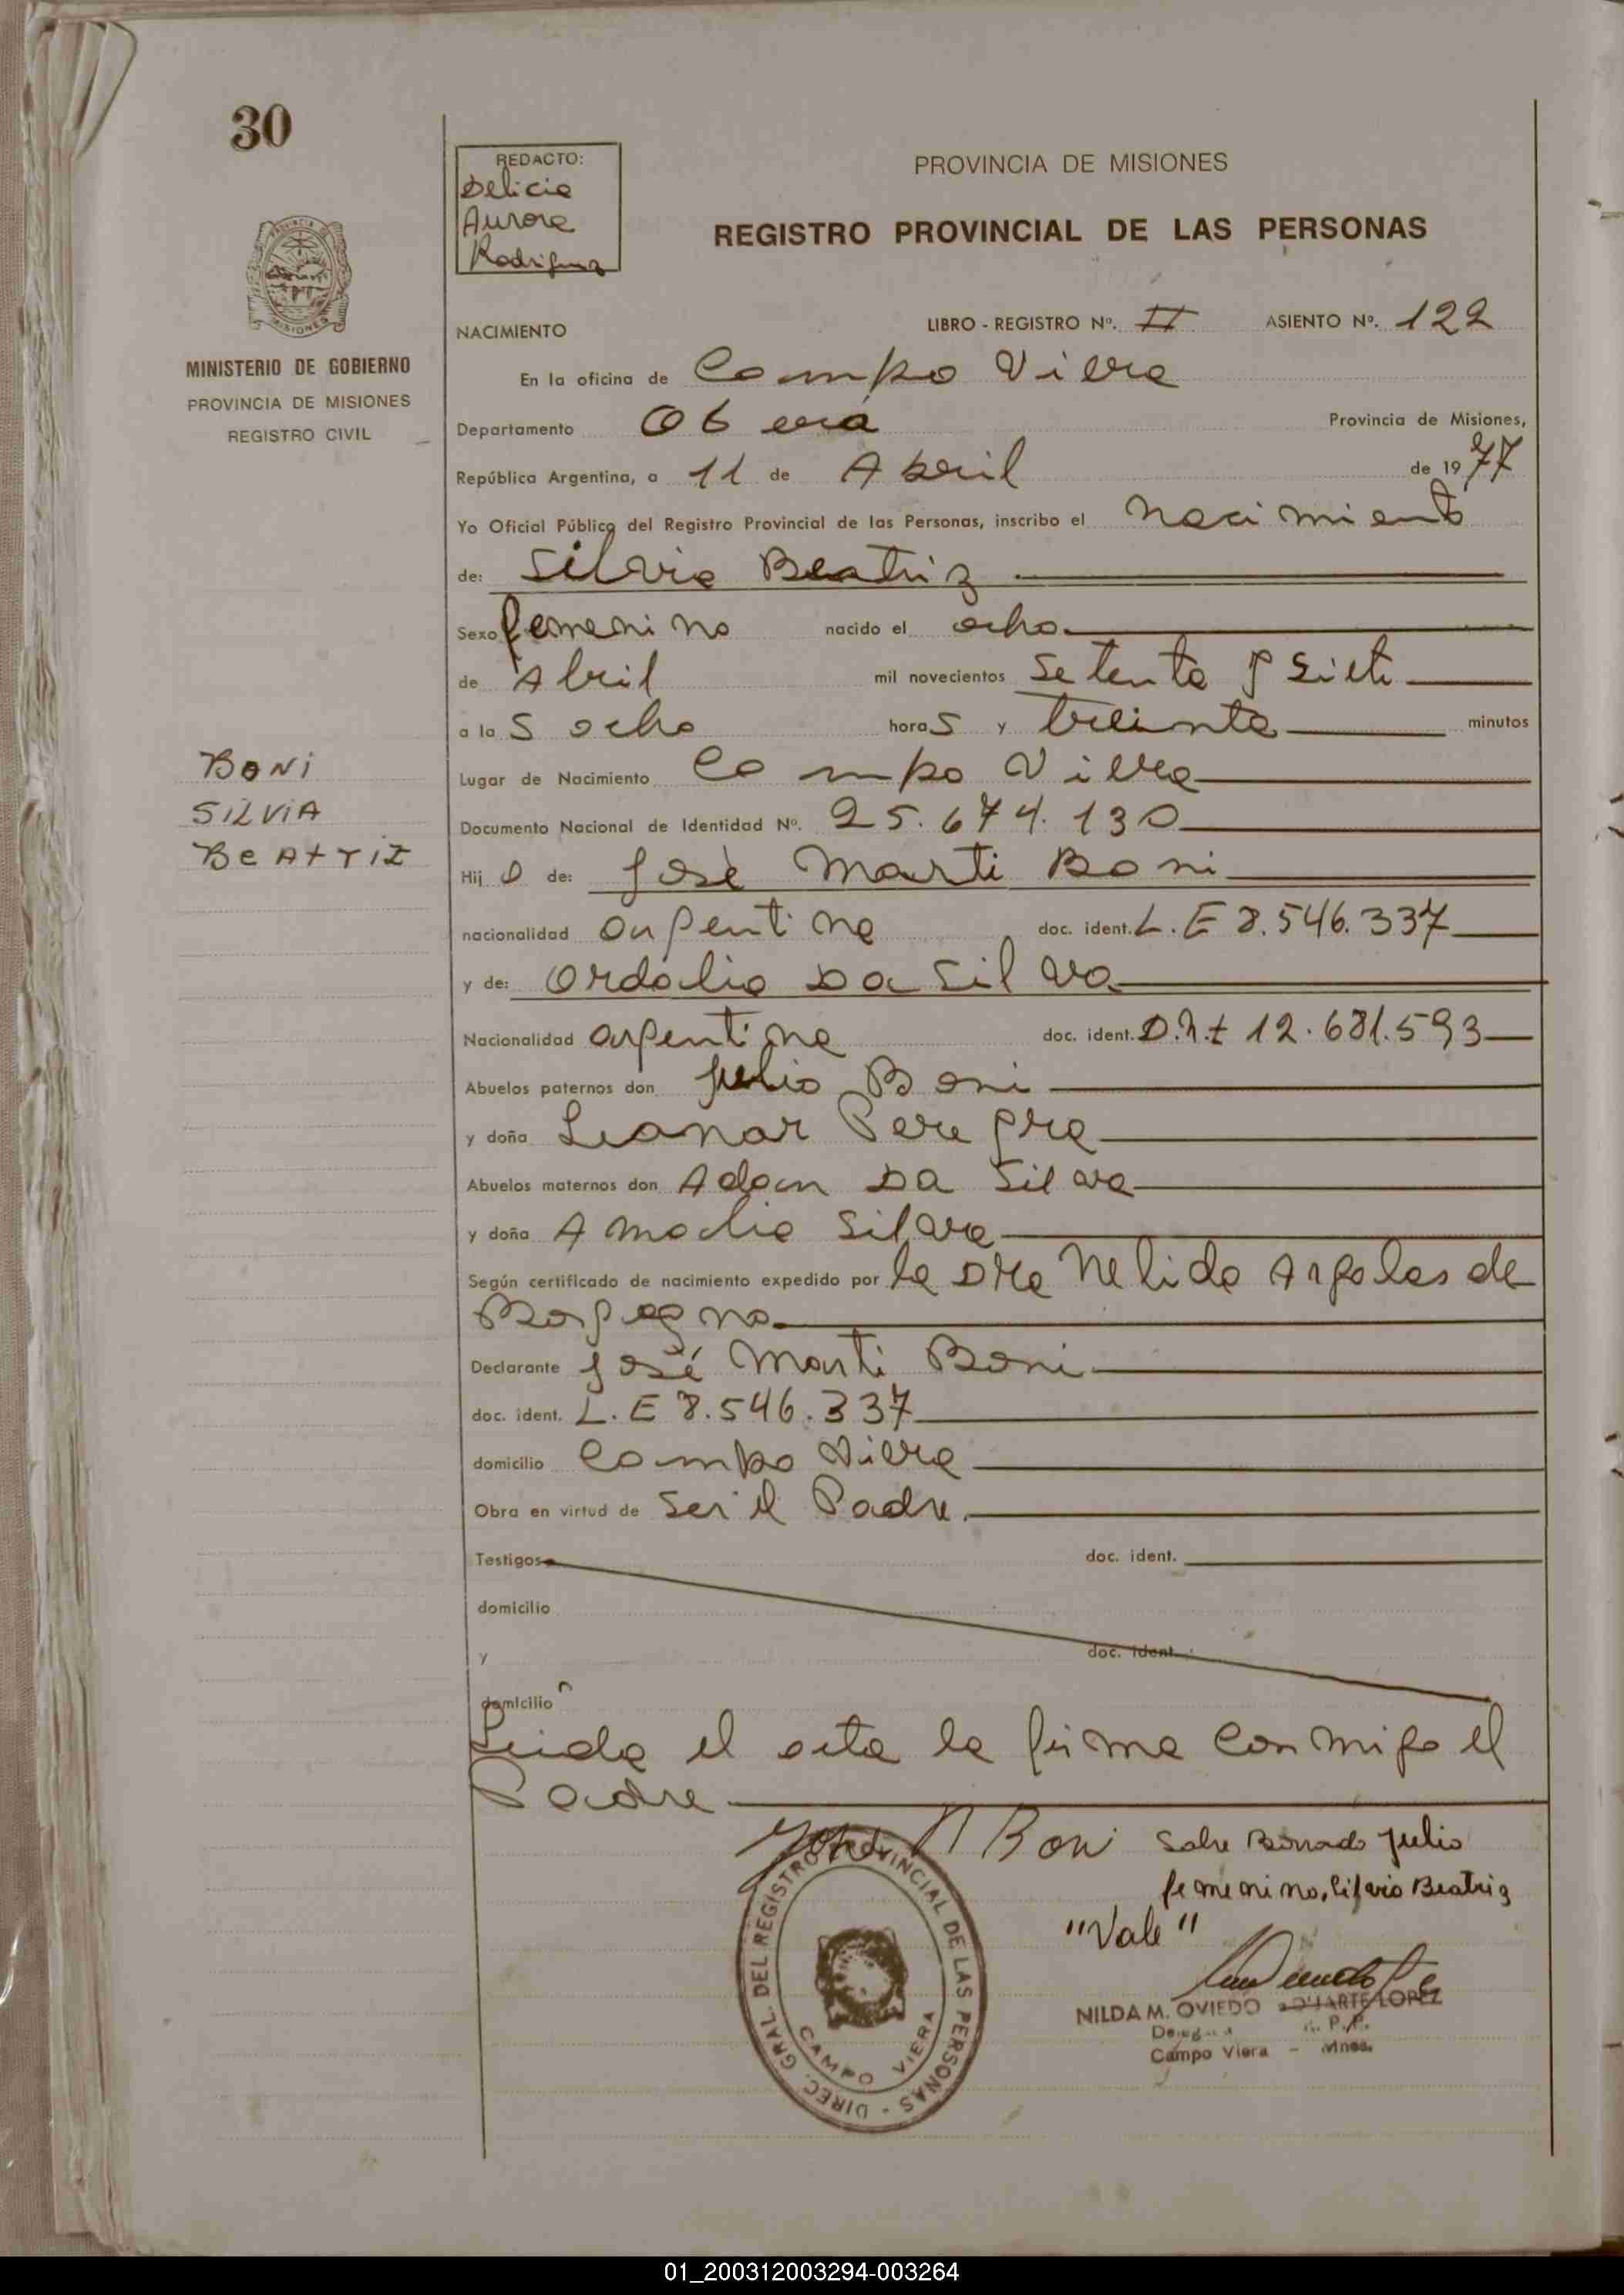 30
REDACTO:
Delicia
Aurora
Rodriguez
PROVINCIA DE MISIONES
REGISTRO PROVINCIAL DE LAS PERSONAS
MISIONES
MINISTERIO DE GOBIERNO
PROVINCIA DE MISIONES
REGISTRO CIVIL
NACIMIENTO LIBRO - REGISTRO Nº. II ASIENTO Nº. 122
En la oficina de Campo Viera
Departamento Oberá Provincia de Misiones,
República Argentina, a 11 de Abril de 1977
Yo Oficial Público del Registro Provincial de las Personas, inscribo el Nacimiento
de: Silvia Beatriz
Sexo femenino nacido el ocho
de Abril mil novecientos setenta y siete
a las ocho horas y treinta minutos
Lugar de Nacimiento Campo Viera
Documento Nacional de Identidad Nº. 25.674.130
BONI
SILVIA
BEATRIZ
Hij a de: José Marti Boni
nacionalidad argentina doc. ident. L.E 8.546.337
y de: Ordalia Da Silva
Nacionalidad argentina doc. ident. D.N.I 12.681.593
Abuelos paternos don Julio Boni
y doña Leonor Pereyra
Abuelos maternos don Adan Da Silva
y doña Amalia Silva
Según certificado de nacimiento expedido por la Dra Nelida de
Declarante José Marti Boni
doc. ident. L.E 8.546.337
domicilio Campo Viera
Obra en virtud de ser el Padre
Testigos doc. ident.
domicilio
y doc. ident.
domicilio
Leida el acta la firma conmigo el
Padre
José M Boni Sobre Borrado Julio
femenino, Silvia Beatriz
"Vale"
DIREC. GRAL. DEL REGISTRO PROVINCIAL DE LAS PERSONAS -
CAMPO VIERA
NILDA M. OVIEDO DUARTE LOPEZ
Delegada R. P. P.
Campo Viera - Mnes.
01_200312003294-003264